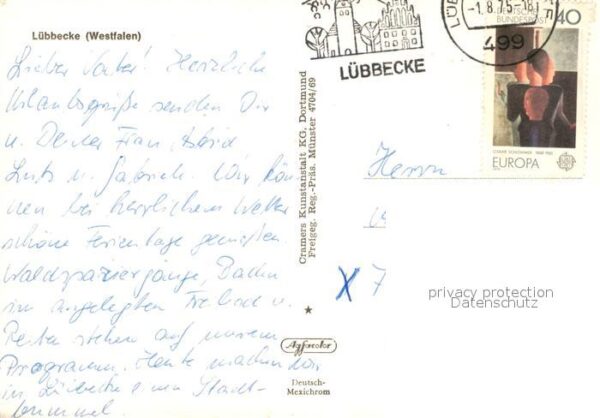 Lübbecke (Westfalen)
Lieber Vater! Herzliche
Urlaubsgrüße senden Dir
u. Deiner Frau, Astrid
Lutz u. Gabriele. Wir kön-
nen bei herrlichem Wetter
schöne Ferientage genießen.
Waldspaziergänge, Baden
im angelegten Freibad u.
Reiten stehen auf unserem
Programm. Heute machen wir
in Lübbecke einen Stadt-
bummel.
Cramers Kunstanstalt KG. Dortmund
Freigeg. Reg.-Präs. Münster 4704/69
Agfacolor
Deutsch-
Mexichrom
LÜBBECKE
-1.8.75-18
499
DEUTSCHE
BUNDESPOST
40
OSKAR SCHLEMMER 1888-1943
EUROPA
Herrn
X 7
privacy protection
Datenschutz